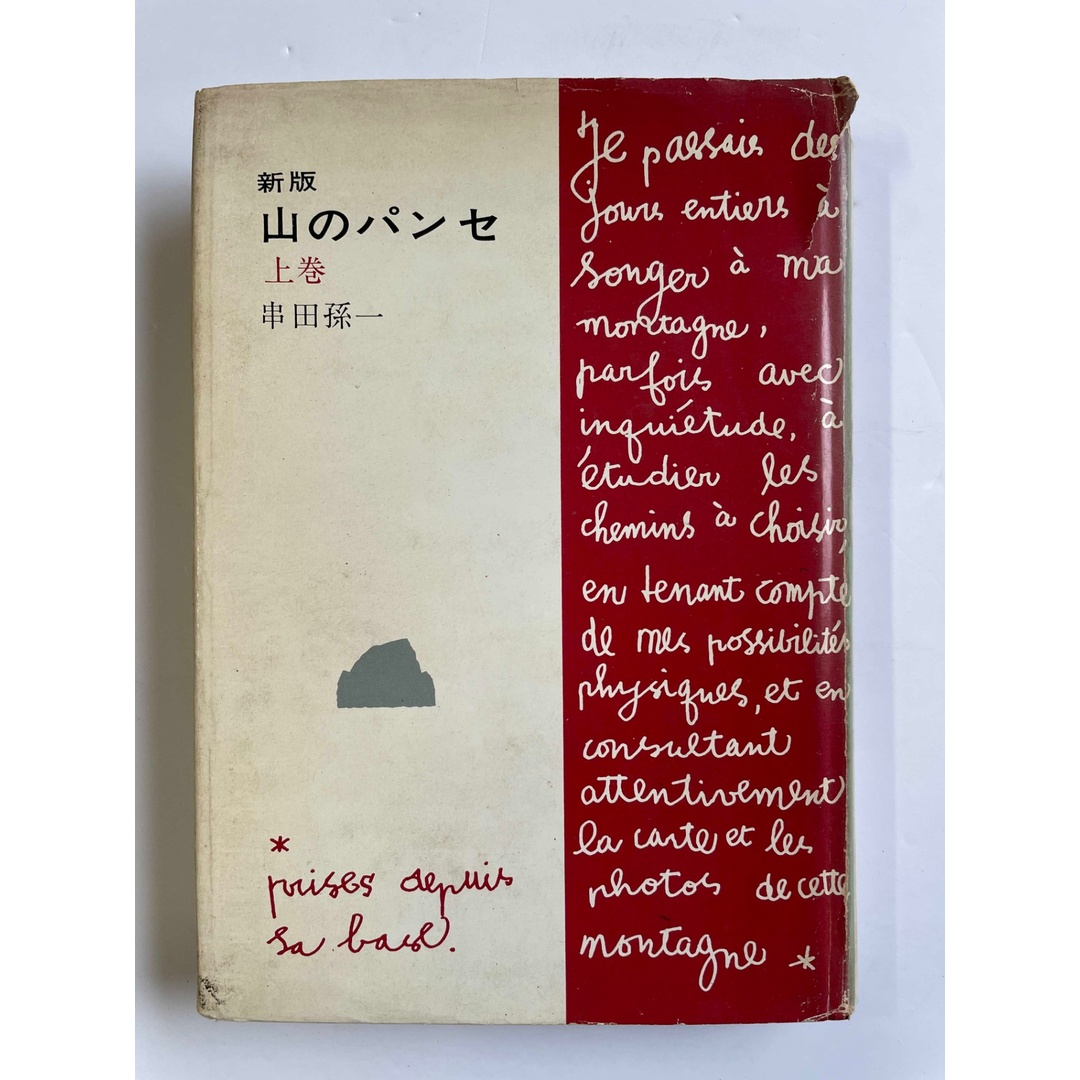 新版
山のパンセ
上巻
串田孫一
Je passais des
jours entiers à
songer à ma
montagne,
parfois avec
inquiétude, à
étudier les
chemins à choisir,
en tenant compte
de mes possibilités
physiques, et en
consultant
attentivement
la carte et les
photos de cette
montagne *
*
prises depuis
sa base.